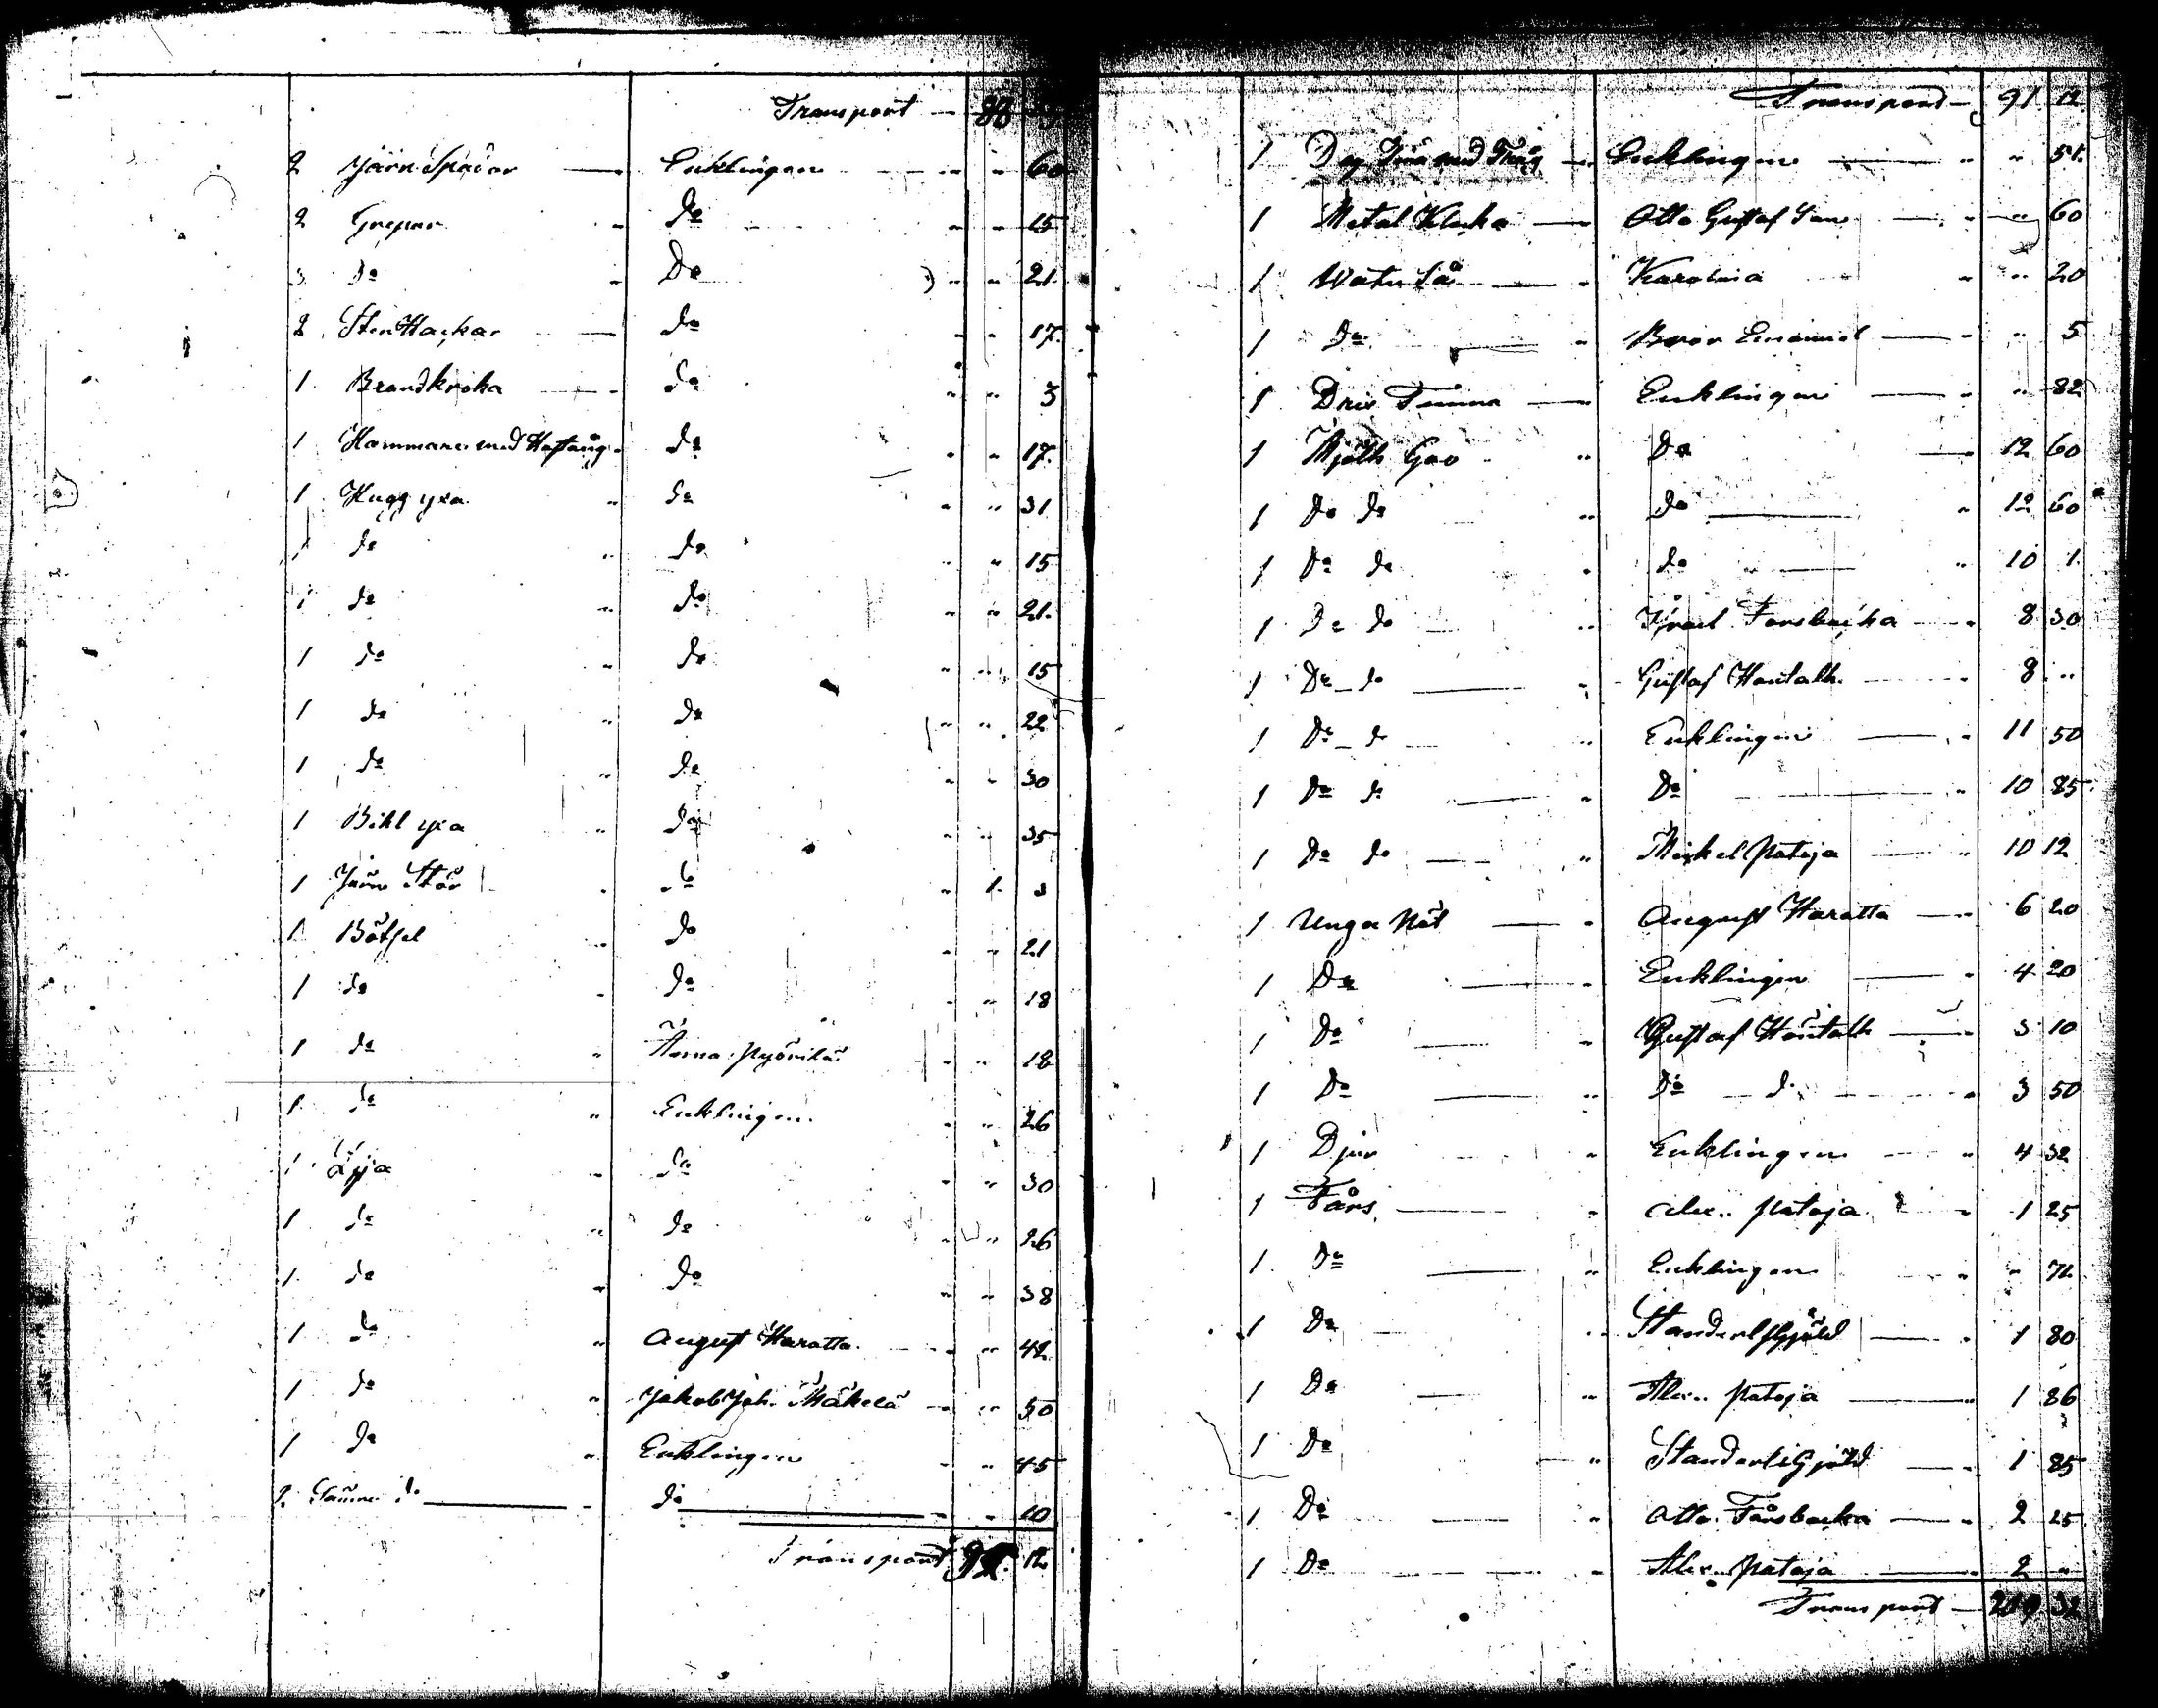 Transport — 88
2 Järn Spador — Enklingen " " 60
2 Grepar " Do " " 15
3 Do " Do " " 21
2 Sten Hackar — do " " 17
1 Brandkroka — do " " 3
1 Hammare med do " " 17
1 Hugg yxa " do " " 31
1 do " do " " 15
1 do " do " " 21
1 do " do " " 15
1 do " do " " 22
1 do " do " " 30
1 Bihl yxa " do " " 35
1 Järn Stör " do " 1 3
1 Bötsel " do " " 21
1 do " do " " 18
1 do " Anna Pyörilä " " 18
1 do " Enklingen " " 26
1 Lyja " do " " 30
1 do " do " " 26
1 do " do " " 38
1 do " August Haratta " " 42
1 do " Jakob Joh. Mäkelä " " 50
1 do " Enklingen " " 45
2 Sämre do — do — " " 10
Transport 91 12
Transport — 91 12
1 Enklingen — " " 51
1 Metal Klocka — Otto Gustaf — " " 60
1 Watu Så — " Karolina " " 20
1 Do — " Bror Emanuel — " " 5
1 Drix — Enklingen — " " 82
1 Mjölk Goo " Do — 12 60
1 Do do " Do — " 12 60
1 Do do " do — " 10 1
1 Do do " Israel Forsbacka — 8 30
1 Do do — " Gustaf Hantalh — " 8 "
1 Do do " Enklingen — " 11 50
1 Do do — " Do — " 10 85
1 Do do — " Mickel Pataja — " 10 12
1 Unga Nöt — " August Haratta — 6 20
1 Do — " Enklingen — " 4 20
1 Do — " Gustaf Hantalh — " 3 10
1 Do — " Do do — " 3 50
1 Djur " Enklingen — " 4 32
1 Fårs — " Alex. Pataja — " 1 25
1 Do — " Enklingen " " 72
1 Do " — " 1 80
1 Do — " Alex. Pataja — " 1 86
1 Do — " — " 1 85
1 Do — " Otto Fårsbacka — " 2 25
1 Do — " Alex. Pataja — " 2 "
Transport — 219 32